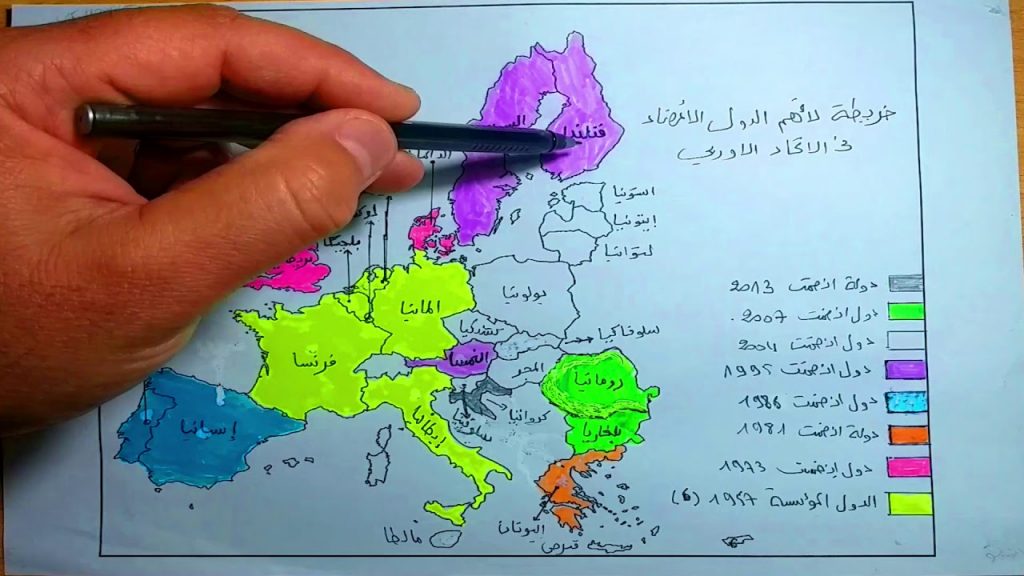 خريطة لأهم الدول الأعضاء
في الاتحاد الأوربي
فنلندا
استونيا
ليتوانيا
بلجيكا
المانيا
بولونيا
سلوفاكيا
التشيك
النمسا
المجر
فرنسا
رومانيا
كرواتيا
إسبانيا
إيطاليا
بلغاريا
اليونان
مالطا
قبرص
دولة انضمت 2013
دول انضمت 2007
دول انضمت 2004
دول انضمت 1995
دول انضمت 1986
دولة انضمت 1981
دول إنضمت 1973
الدول المؤسسة 1957 (6)